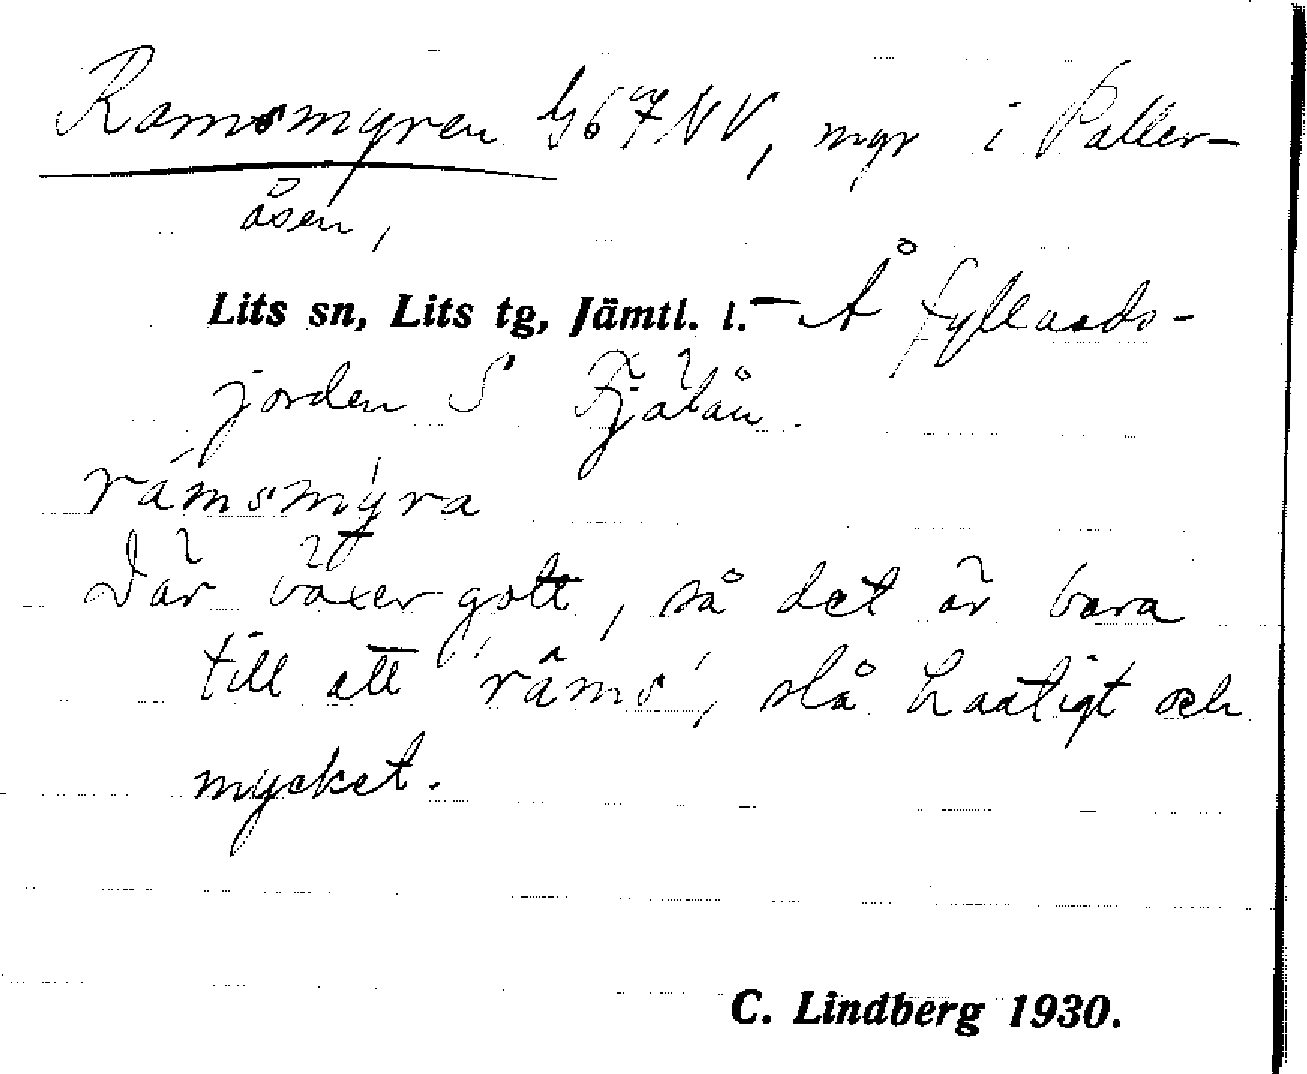 Ramsmyren G67NV, myr i Paller-
åsen,
Lits sn, Lits tg, Jämtl. l. – Å fyllands-
jorden S Fjälån.
råmsmýra
Där växer gott, så det är bara
till att 'râms', slå hastigt och
mycket.
C. Lindberg 1930.